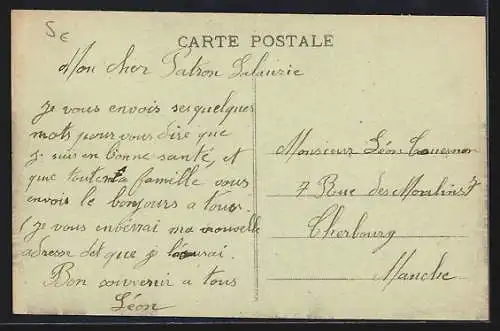 5€
CARTE POSTALE
Mon cher Patron
Je vous envois ses quelques
mots pour vous dire que
je suis en bonne santé, et
que toute ma famille vous
envois le bonjours a tous.
Je vous enverrai ma nouvelle
adresse det que je l'aurai.
Bon souvenir a tous
Léon
Monsieur Léon
7 Rue des Moulins 7
Cherbourg
Manche